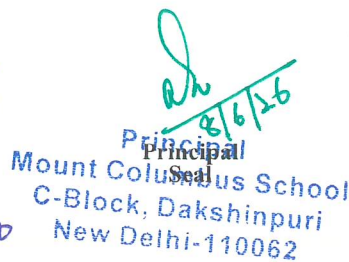 8/6/26
Principal
Principal
Seal
Mount Columbus School
C-Block, Dakshinpuri
New Delhi-110062